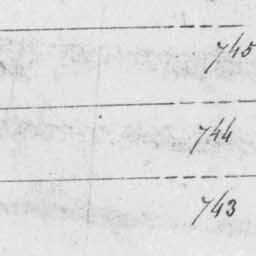 745
744
743